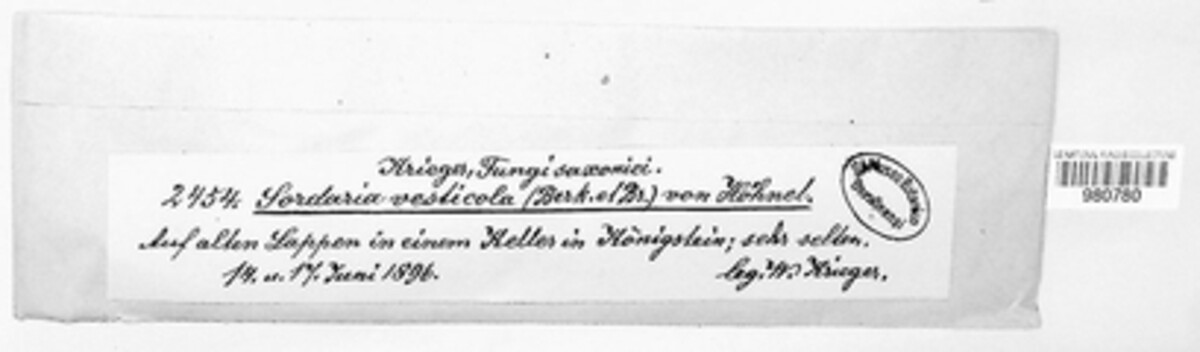 Krieger, Fungi saxonici.
2454. Sordaria vesticola (Berk. et Br.) von Höhnel.
Auf alten Lappen in einem Keller in Königstein; sehr selten.
14. u. 17. Juni 1896.
leg. W. Krieger.
980780